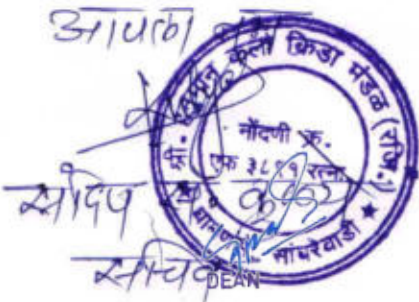 आपला
श्री. हनुमान कला क्रिडा मंडळ (रजि.)
नोंदणी क्र.
एफ ३८९१ रत्ना.
सांबरेवाडी ★
संदिप
सचिव
DEAN